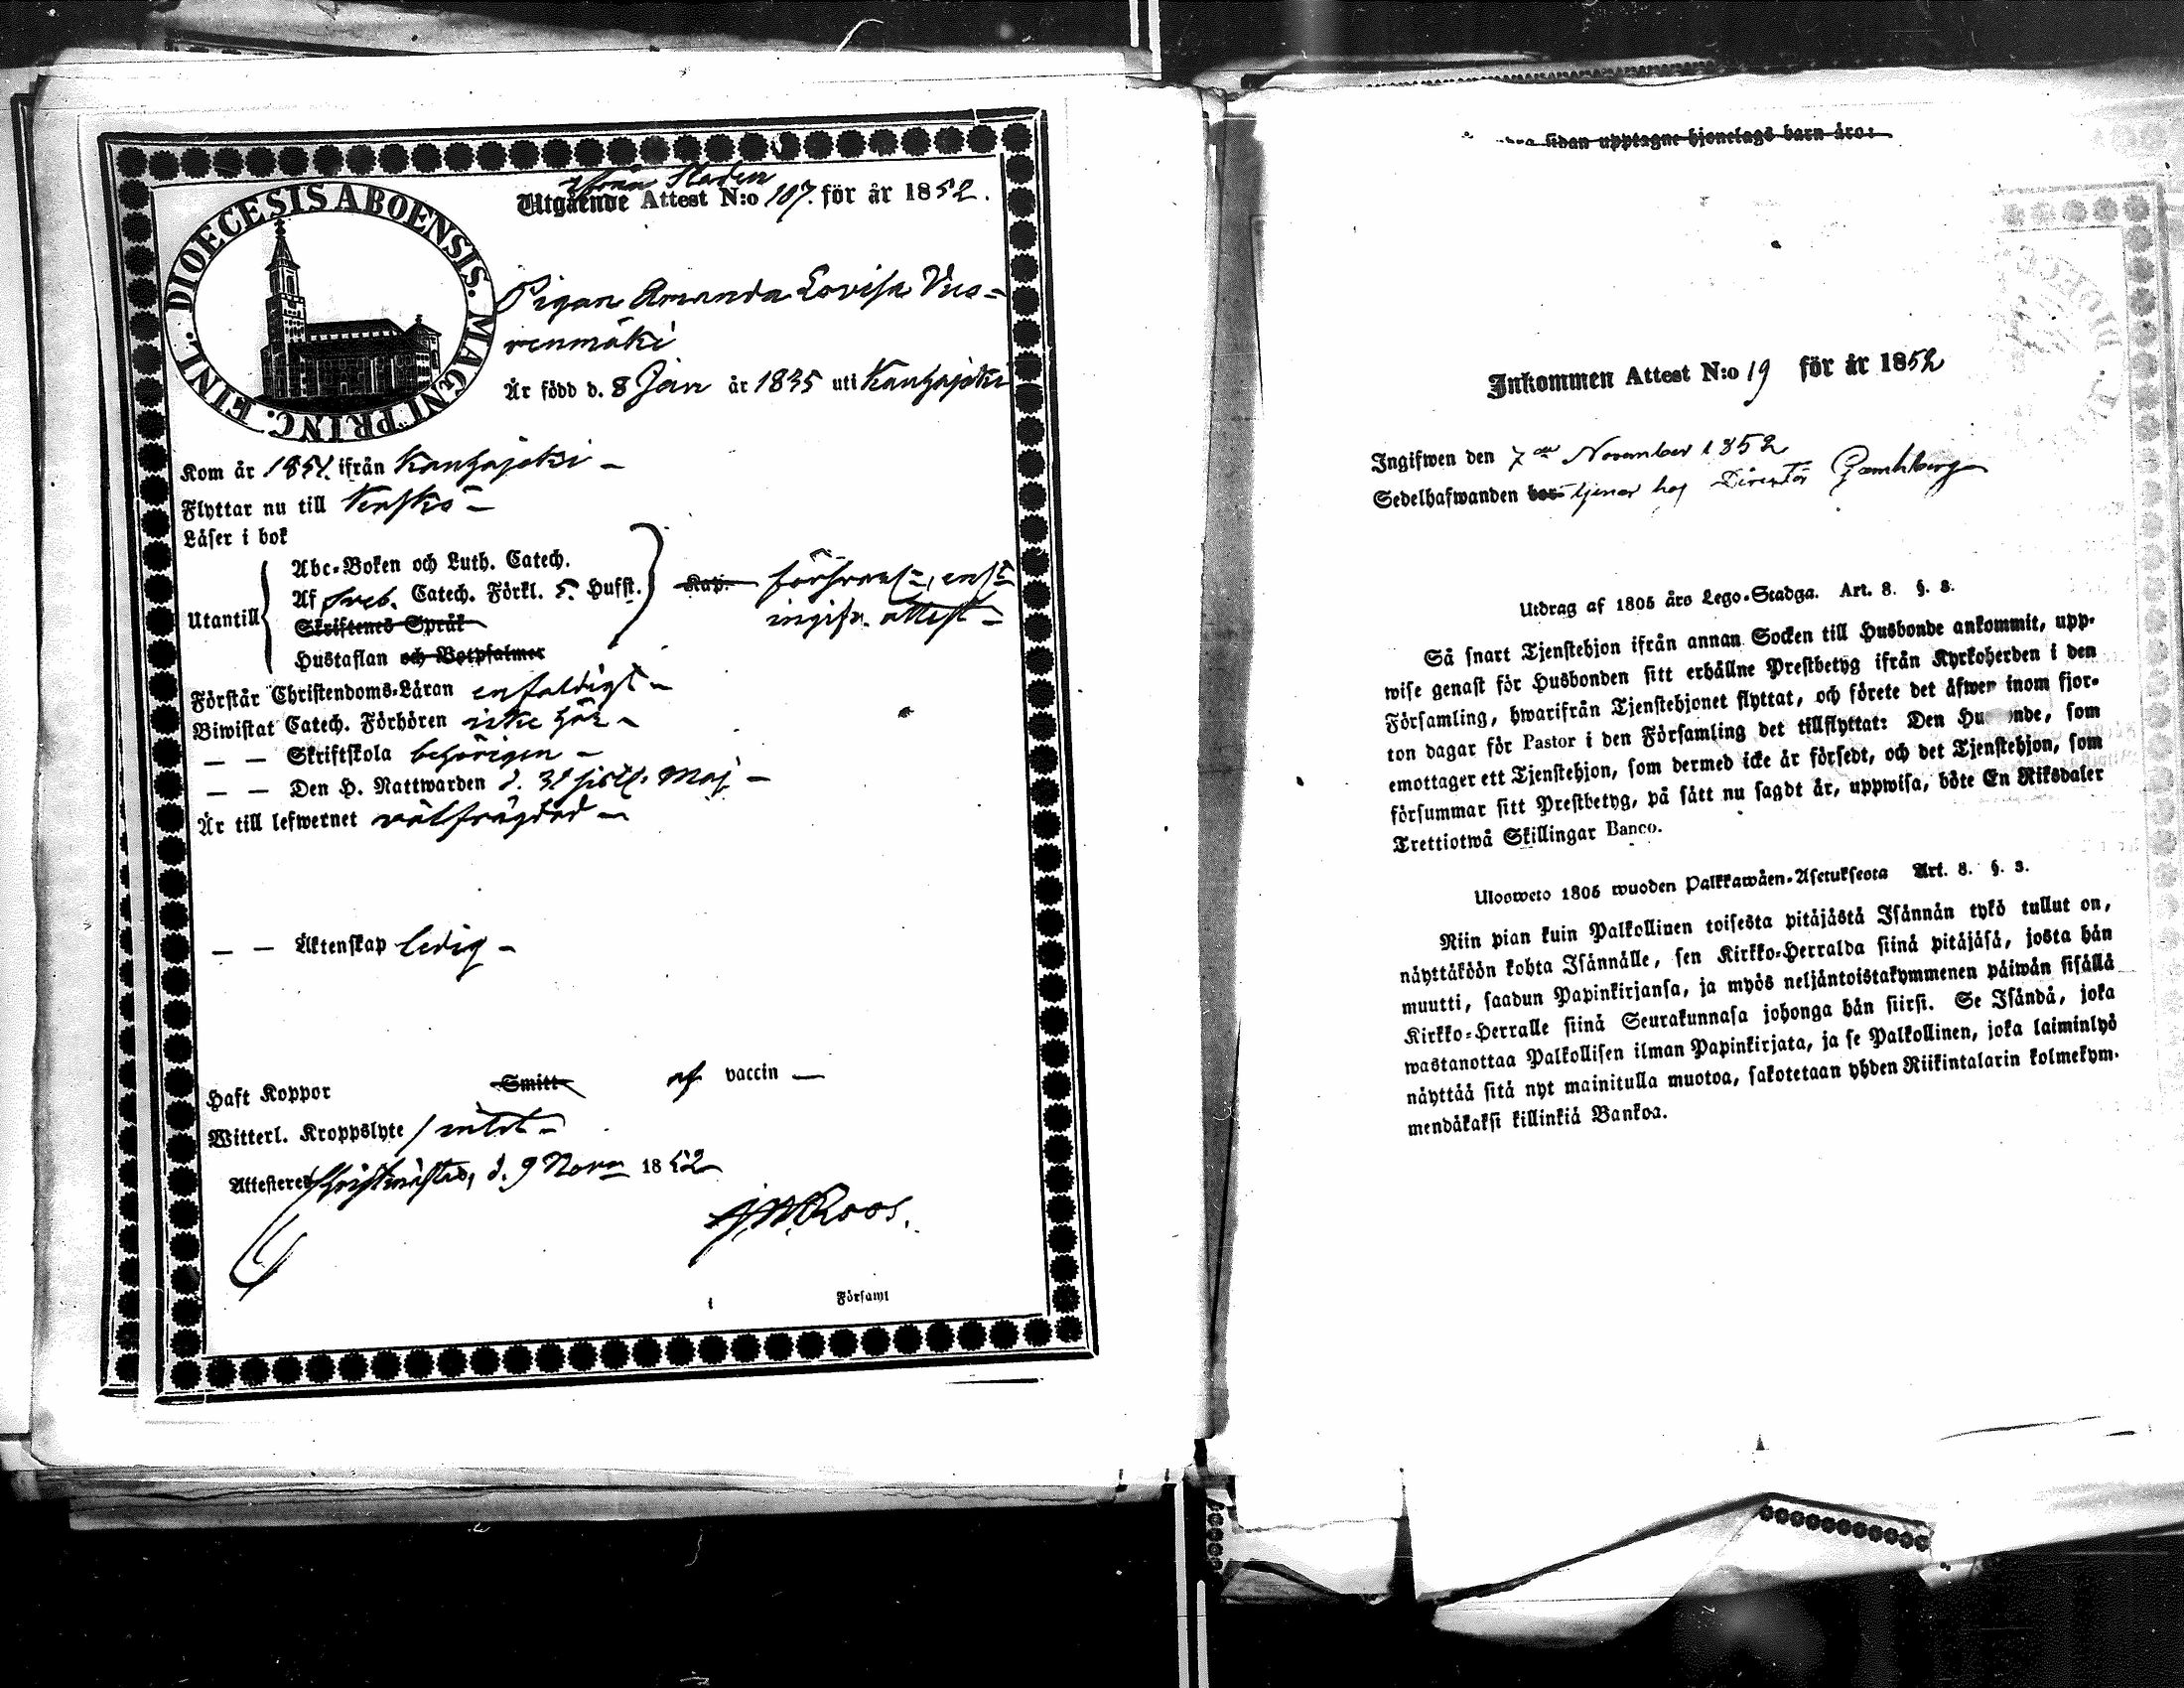 DIOECESIS ABOENSIS. MAGNI PRINC. FINL.
ifrån Staden
Utgående Attest N:o 107. för år 1852.
Pigan Amanda Lovisa Vuo-
renmäki
Är född d. 8 Jan år 1835 uti Kauhajoki
Kom år 1851. ifrån Kauhajoki –
Flyttar nu till Kaskö –
Läser i bok
Utantill
Abc-Boken och Luth. Catech.
Af Sveb. Catech. Förkl. 5. Hufst.
Skriftenes Språk
Hustaflan och Botpsalmer
Kap. försvarl., enl.
ingifv. attest –
Förstår Christendoms-Läran enfaldigt –
Biwistat Catech. Förhören icke här –
— — Skriftskola behörigen –
— — Den H. Nattwarden d. 31 sistl. Maj –
Är till lefwernet välfrägdad –
— — Äktenskap ledig –
Haft Koppor Smitt af vaccin —
Witterl. Kroppslyte intet –
Attesterar Christinestad, d. 9 Nov. 1852
Roos.
i Förfaml
sidan upptagne hjonelags barn äro:
Inkommen Attest N:o 19 för år 1852
Ingifwen den 7 November 1852
Sedelhafwanden bor tjenar hos Direktör
Utdrag af 1805 års Lego-Stadga. Art. 8. §. 3.
Så snart Tjenstehjon ifrån annan Socken till Husbonde ankommit, upp-
wise genast för Husbonden sitt erhållne Prestbetyg ifrån Kyrkoherden i den
Församling, hwarifrån Tjenstehjonet flyttat, och förete det äfwen inom fjor-
ton dagar för Pastor i den Församling det tillflyttat: Den Hu nde, som
emottager ett Tjenstehjon, som dermed icke är försedt, och det Tjenstehjon, som
försummar sitt Prestbetyg, på sätt nu sagdt är, uppwisa, böte En Riksdaler
Trettiotwå Skillingar Banco.
Ulosweto 1805 wuoden Palkkawäen-Asetuksesta Art. 8. §. 3.
Niin pian kuin Palkollinen toisesta pitäjästä Isännän tykö tullut on,
näyttäköön kohta Isännälle, sen Kirkko-Herralda siinä pitäjäsä, josta hän
muutti, saadun Papinkirjansa, ja myös neljäntoistakymmenen päiwän sisällä
Kirkko-Herralle siinä Seurakunnasa johonga hän siirsi. Se Isändä, joka
wastanottaa Palkollisen ilman Papinkirjata, ja se Palkollinen, joka laiminlyö
näyttää sitä nyt mainitulla muotoa, sakotetaan yhden Riikintalarin kolmekym-
mendäkaksi killinkiä Bankoa.